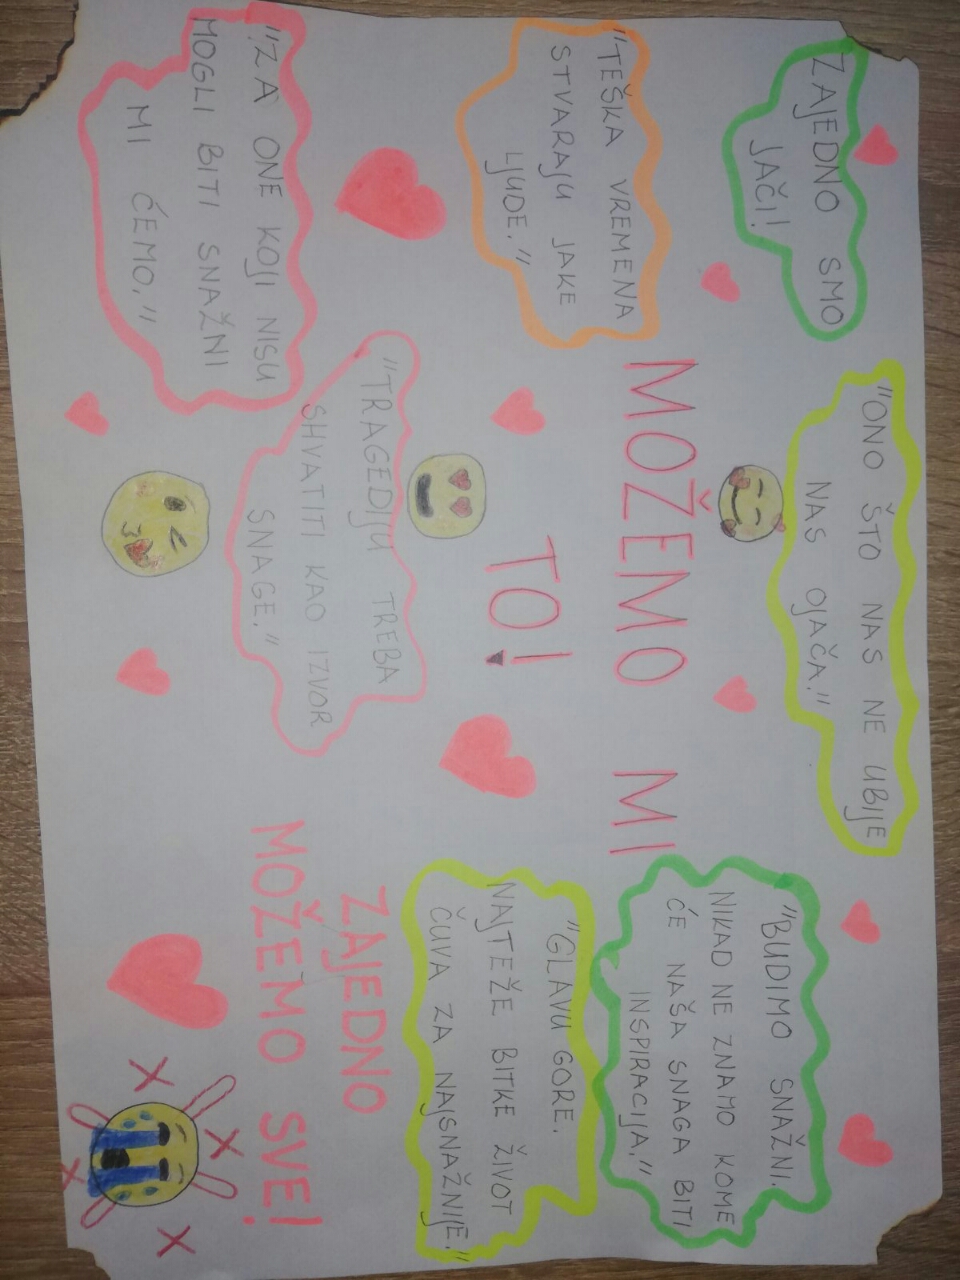 ZAJEDNO SMO
JAČI!
"ONO ŠTO NAS NE UBIJE
NAS OJAČA."
"BUDIMO SNAŽNI.
NIKAD NE ZNAMO KOME
ĆE NAŠA SNAGA BITI
INSPIRACIJA."
"TEŠKA VREMENA
STVARAJU JAKE
LJUDE."
MOŽEMO MI
TO!
"GLAVU GORE.
NAJTEŽE BITKE ŽIVOT
ČUVA ZA NAJSNAŽNIJE."
"ZA ONE KOJI NISU
MOGLI BITI SNAŽNI
MI ĆEMO."
"TRAGEDIJU TREBA
SHVATITI KAO IZVOR
SNAGE."
ZAJEDNO
MOŽEMO SVE!